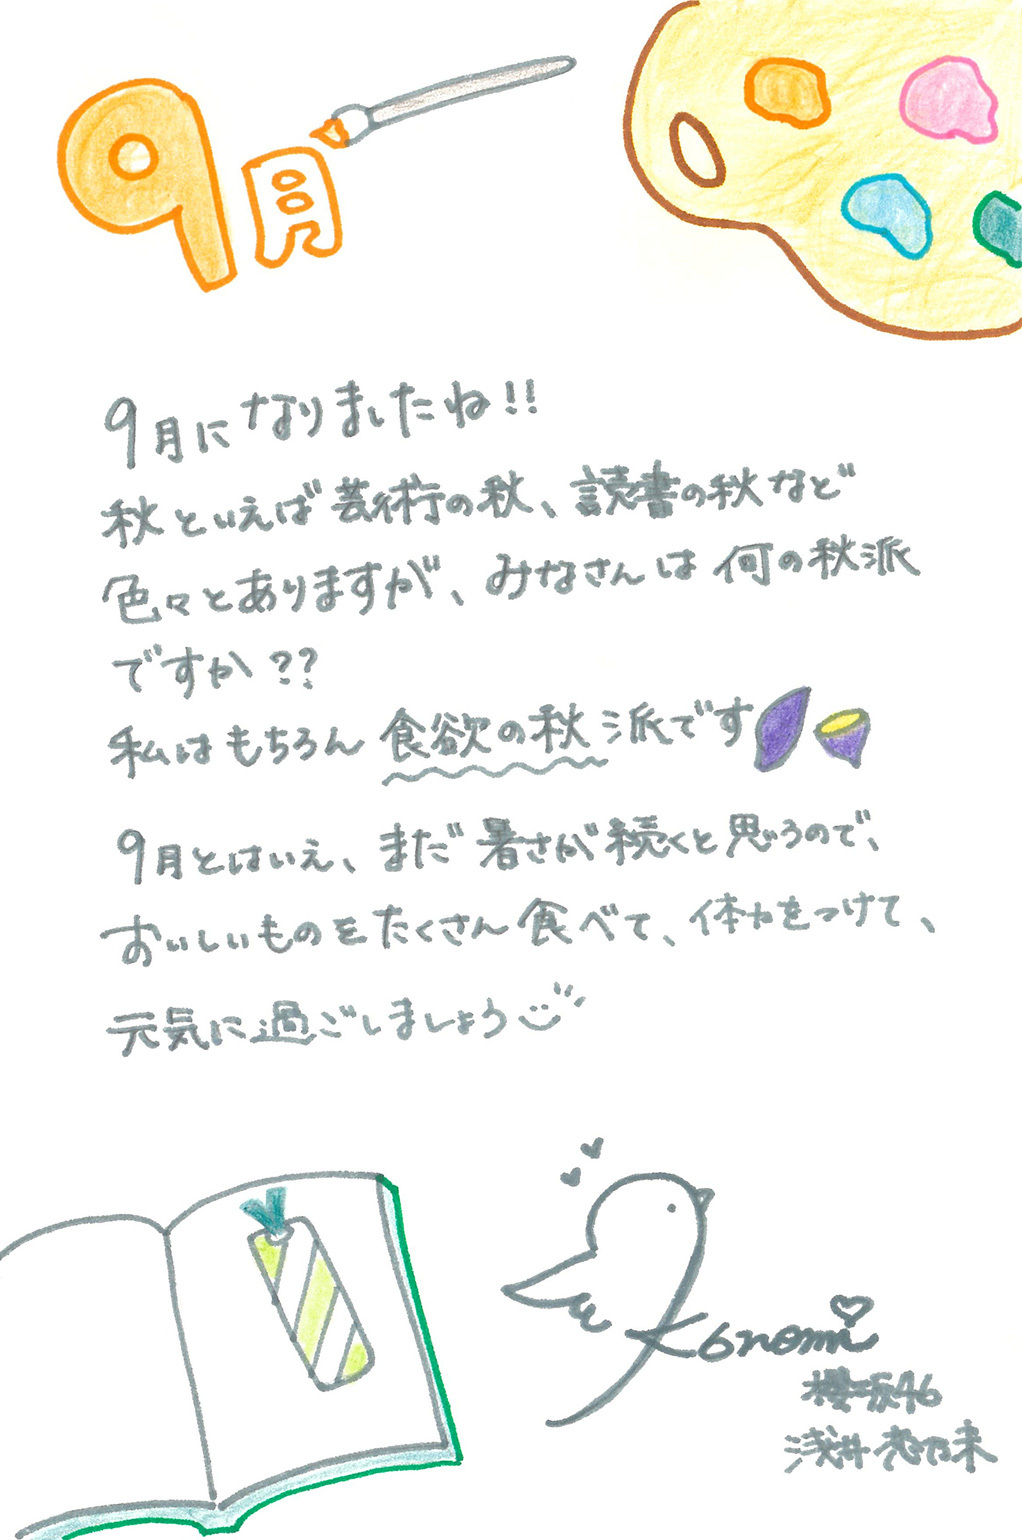 9月
9月になりましたね!!
秋といえば芸術の秋、読書の秋など
色々とありますが、みなさんは何の秋派
ですか??
私はもちろん食欲の秋派です
9月とはいえ、まだ暑さが続くと思うので、
おいしいものをたくさん食べて、体力をつけて、
元気に過ごしましょう
Konomi
櫻坂46
浅井恋乃未